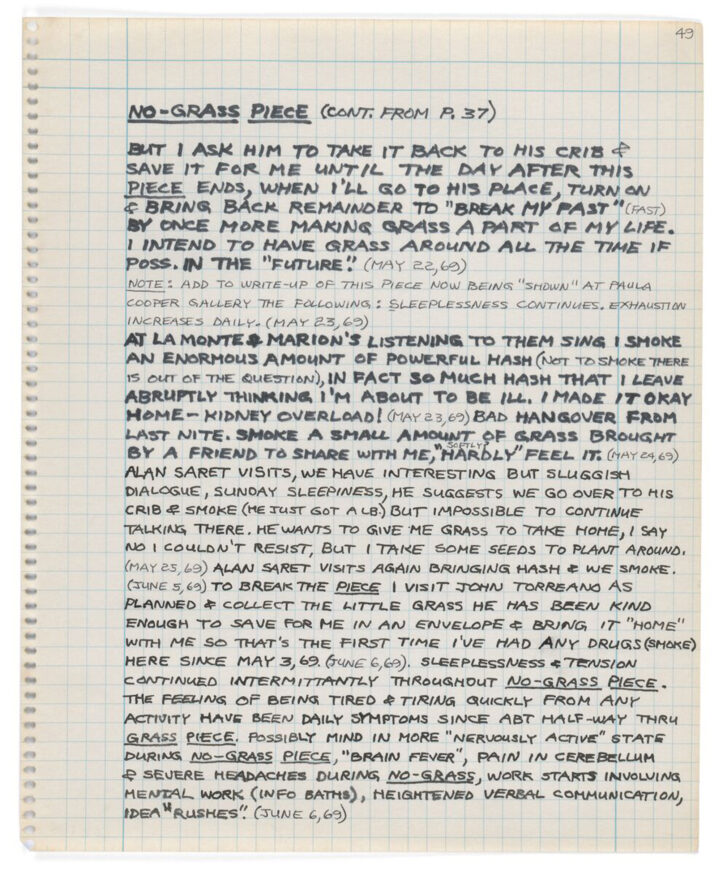 49
NO-GRASS PIECE (CONT. FROM P. 37)
BUT I ASK HIM TO TAKE IT BACK TO HIS CRIB &
SAVE IT FOR ME UNTIL THE DAY AFTER THIS
PIECE ENDS, WHEN I'LL GO TO HIS PLACE, TURN ON
& BRING BACK REMAINDER TO "BREAK MY PAST" (FAST)
BY ONCE MORE MAKING GRASS A PART OF MY LIFE.
I INTEND TO HAVE GRASS AROUND ALL THE TIME IF
POSS. IN THE "FUTURE". (MAY 22,69)
NOTE: ADD TO WRITE-UP OF THIS PIECE NOW BEING "SHOWN" AT PAULA
COOPER GALLERY THE FOLLOWING: SLEEPLESSNESS CONTINUES. EXHAUSTION
INCREASES DAILY. (MAY 23,69)
AT LA MONTE & MARION'S LISTENING TO THEM SING I SMOKE
AN ENORMOUS AMOUNT OF POWERFUL HASH (NOT TO SMOKE THERE
IS OUT OF THE QUESTION), IN FACT SO MUCH HASH THAT I LEAVE
ABRUPTLY THINKING I'M ABOUT TO BE ILL. I MADE IT OKAY
HOME – KIDNEY OVERLOAD! (MAY 23,69) BAD HANGOVER FROM
LAST NITE. SMOKE A SMALL AMOUNT OF GRASS BROUGHT
SOFTLY
BY A FRIEND TO SHARE WITH ME, "HARDLY" FEEL IT. (MAY 24,69)
ALAN SARET VISITS, WE HAVE INTERESTING BUT SLUGGISH
DIALOGUE, SUNDAY SLEEPINESS, HE SUGGESTS WE GO OVER TO HIS
CRIB & SMOKE (HE JUST GOT A LB.) BUT IMPOSSIBLE TO CONTINUE
TALKING THERE. HE WANTS TO GIVE ME GRASS TO TAKE HOME, I SAY
NO I COULDN'T RESIST, BUT I TAKE SOME SEEDS TO PLANT AROUND.
(MAY 25,69) ALAN SARET VISITS AGAIN BRINGING HASH & WE SMOKE.
(JUNE 5,69) TO BREAK THE PIECE I VISIT JOHN TORREANO AS
PLANNED & COLLECT THE LITTLE GRASS HE HAS BEEN KIND
ENOUGH TO SAVE FOR ME IN AN ENVELOPE & BRING IT "HOME"
WITH ME SO THAT'S THE FIRST TIME I'VE HAD ANY DRUGS (SMOKE)
HERE SINCE MAY 3,69. (JUNE 6,69). SLEEPLESSNESS & TENSION
CONTINUED INTERMITTANTLY THROUGHOUT NO-GRASS PIECE.
THE FEELING OF BEING TIRED & TIRING QUICKLY FROM ANY
ACTIVITY HAVE BEEN DAILY SYMPTOMS SINCE ABT HALF-WAY THRU
GRASS PIECE. POSSIBLY MIND IN MORE "NERVOUSLY ACTIVE" STATE
DURING NO-GRASS PIECE, "BRAIN FEVER", PAIN IN CEREBELLUM
& SEVERE HEADACHES DURING NO-GRASS, WORK STARTS INVOLVING
MENTAL WORK (INFO BATHS), HEIGHTENED VERBAL COMMUNICATION,
IDEA "RUSHES". (JUNE 6,69)